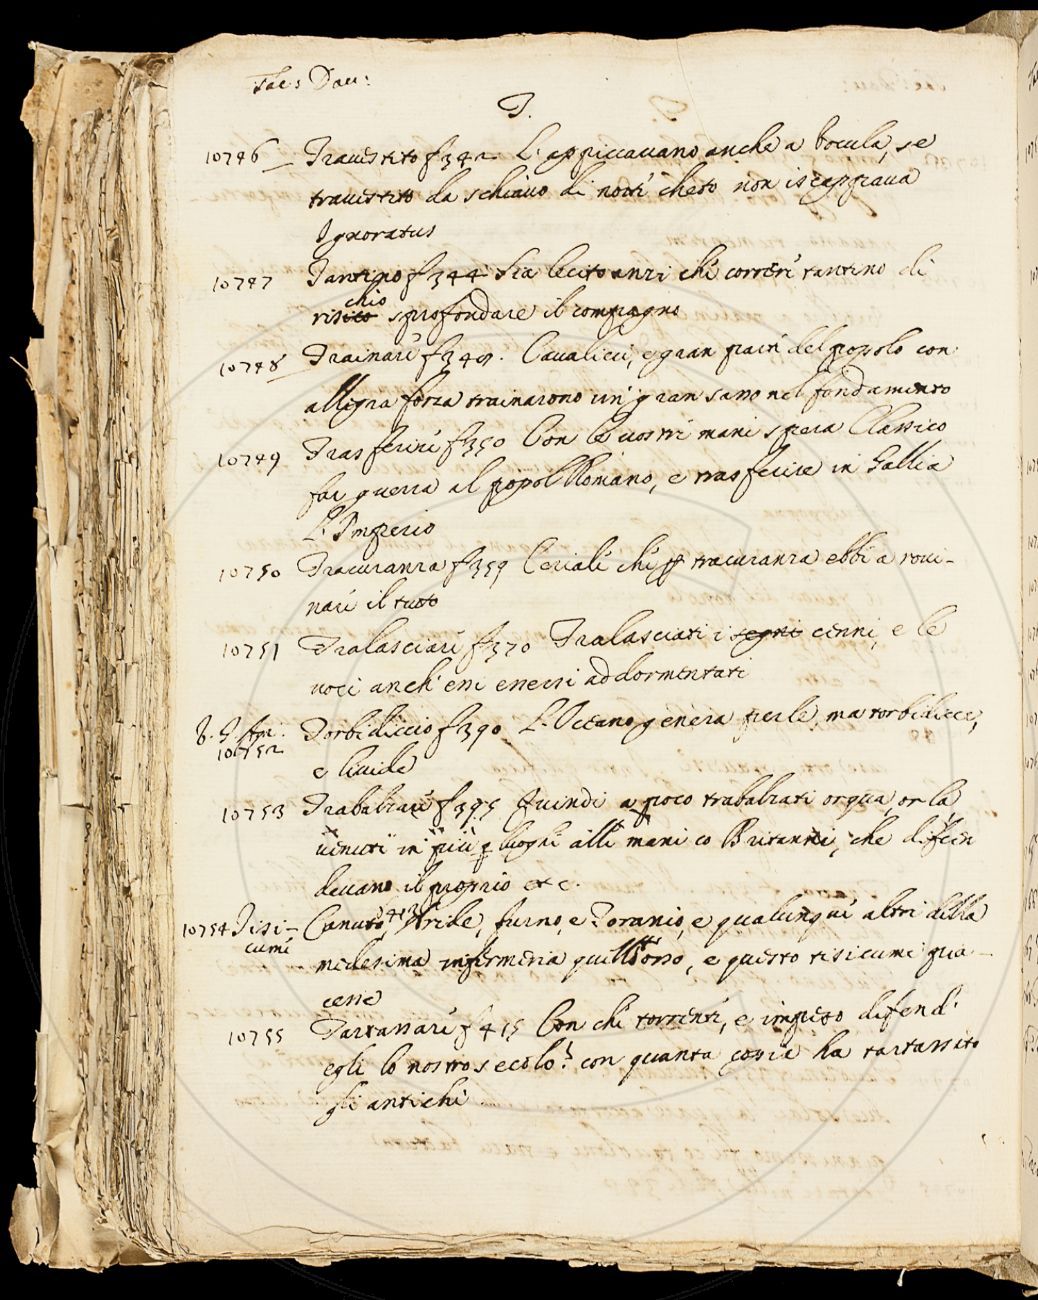 Tac: Dau:
T.
10746 Trauestito f 342 L'appiccauano anche a boccula, se
trauestito da schiauo di notte cheto non iscappaua
Ignoratus
10747 Tantino f 344 Sia lecito anzi chi correre tantino di
risico chio sprofondare il compagno
10748 Trainare f 349. Caualieri, e gran parte del popolo con
allegra forza trainarono un gran sasso nel fondamento
10749 Trasferire f 350 Con le uostri mani spera Classico
far guerra al popol Romano, e trasferire in Gallia
L'Imperio
10750 Tracuranza f 359 Ceriale chi p tracuranza ebbe a roui-
nare il tutto
10751 Tralasciare f 370 Tralasciati i segni cenni, e le
uoci anch' essi addormentati
10752 Torbidiccio f 390 L'Oceano genera perle, ma torbidicce,
e liuide
10753 Trabalzare f 395 Quindi a poco trabalzati or qua, or là,
uenuti in più luoghi alle mani co Britanni, che difen
deuano il proprio etc.
10754 Tisi-
cume
Canuto, Aride, furno, e Toranio, e qualunque altri della
medesima infermeria 413 quell' osso, e questo tisicume pia
cesse
10755 Tartassare f 415 Con che torrente, e impeto difend'
egli lo nostro secolo? con quanta copia ha tartassato
gli antichi